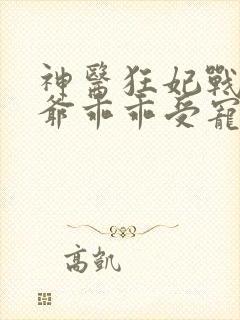 神醫狂妃戰
爺乖乖受寵
高凱